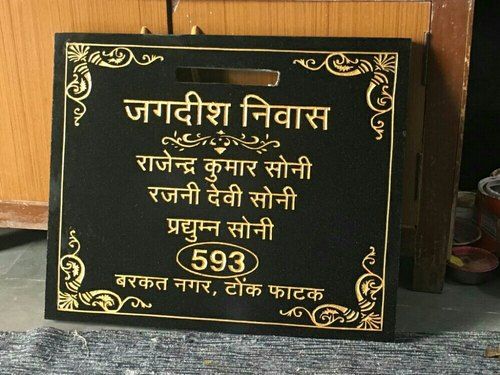 जगदीश निवास
राजेन्द्र कुमार सोनी
रजनी देवी सोनी
प्रद्युम्न सोनी
593
बरकत नगर, टोंक फाटक